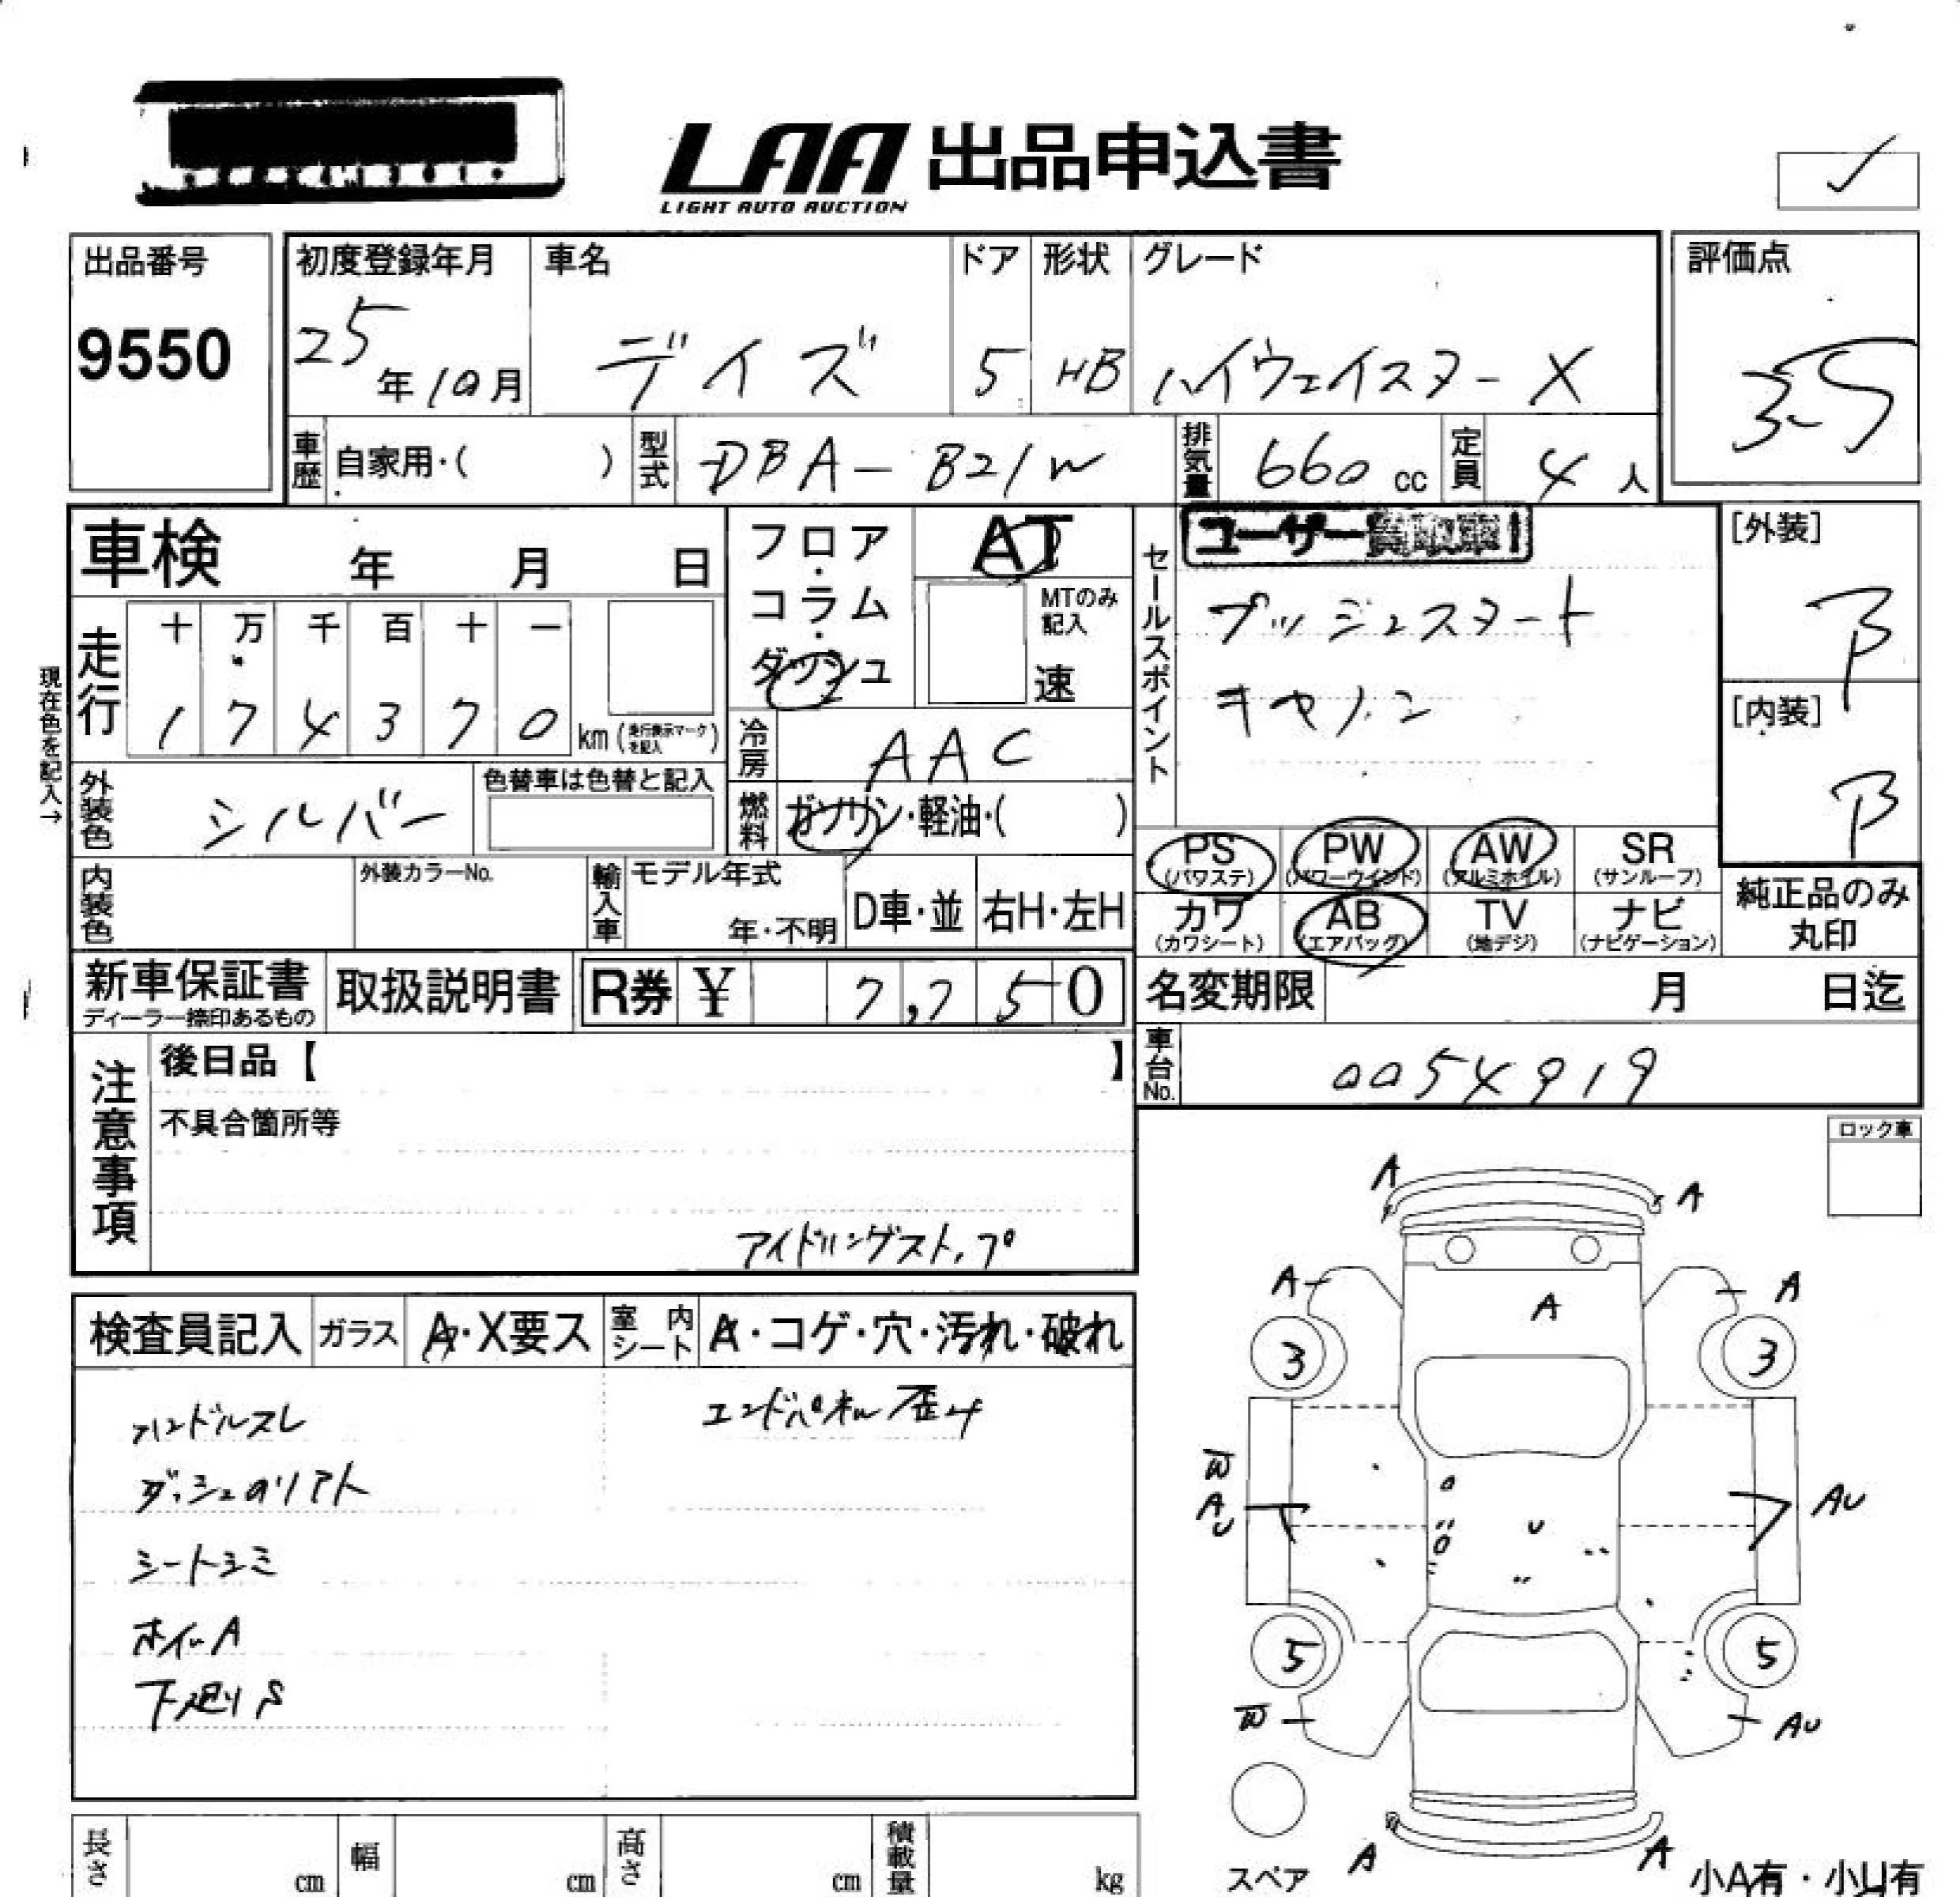 LAA 出品申込書
LIGHT AUTO AUCTION
✓
出品番号
9550
初度登録年月
25年10月
車名
デイズ
ドア
5
形状
HB
グレード
ハイウェイスター X
評価点
3.5
車歴
自家用・( )
型式
DBA-B21W
排気量
660 cc
定員
4 人
車検 年 月 日
フロア・コラム・ダッシュ
AT
MTのみ記入
速
セールスポイント
ユーザー
プッシュスタート
キャノン
[外装]
B
[内装]
B
現在色を記入→
走行
十 万 千 百 十 一
1 7 4 3 7 0 km (走行表示マークを記入)
冷房
AAC
外装色
シルバー
色替車は色替と記入
燃料
ガソリン・軽油・( )
PS (パワステ)
PW (パワーウインド)
AW (アルミホイル)
SR (サンルーフ)
カワ (カワシート)
AB (エアバッグ)
TV (地デジ)
ナビ (ナビゲーション)
純正品のみ丸印
内装色
外装カラーNo.
輸入車
モデル年式
年・不明
D車・並
右H・左H
新車保証書
ディーラー捺印あるもの
取扱説明書
R券 ¥ 7,750
名変期限 月 日迄
車台No.
0054919
注意事項
後日品【 】
不具合箇所等
アイドリングストップ
ロック車
検査員記入
ガラス
A・X要ス
室内シート
A・コゲ・穴・汚れ・破れ
ハンドルスレ
ダッシュノリアト
シートシミ
ホイルA
下廻りS
エンドパネル歪み
A
A
A
A
A
3
3
W
A
U
U
AU
5
5
W
AU
A
A
スペア
小A有・小U有
長さ cm
幅 cm
高さ cm
積載量 kg